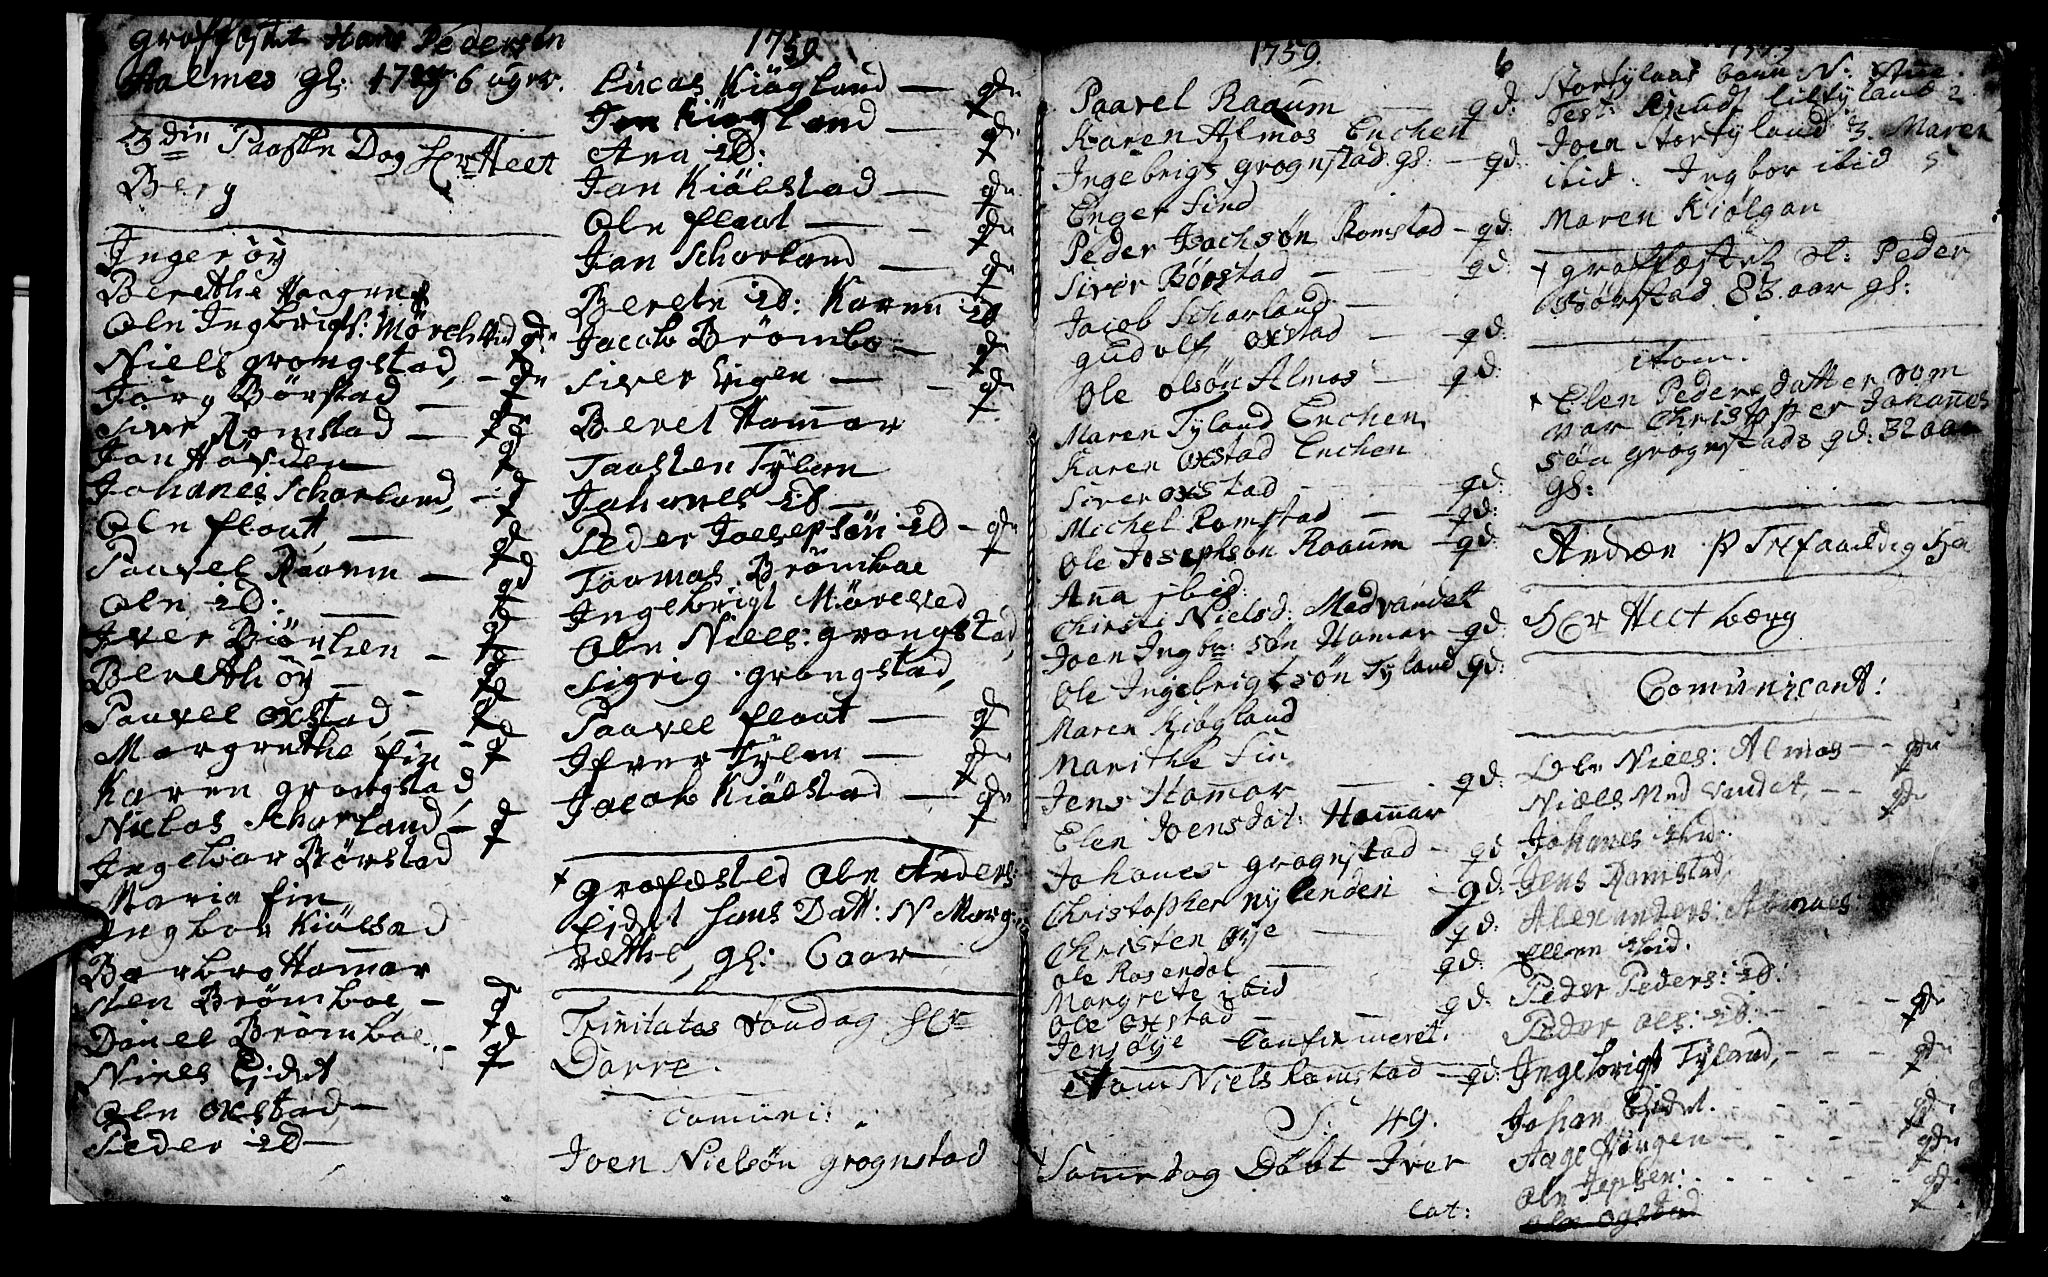 grafæstet Hans Pedersen
Aalmes gl: 6 uger.
3die Paaske Dag Hr Heet
Berg
Inger öÿ
Berethe Haagenst
Ole Ingbrigts: Mörchstad
Niels grongstad
Jörg Börstad
Siver Romstad
Jon Höÿden
Johanes Schorland
Ole float
Paavel Raaum
Ole id:
Iver Biörken
Bereth öÿ
Paavel oxstad
Margrethe fin
Karen grongstad
Nielas Schorland
Ingebor Börstad
Maria fin
Ingbor Kiölstad
Barbro Hamar
Sten Brömboe
Daniel Brömboe
Niels Eidet
Ole oxstad
Peder id
1759
Lucas Kiögland
Jon Kiögland
Ana id:
Jon Kiölstad
Ole float
Jon Schorland
Berete id: Karen id
Jacob Brömbo
Siver Vigen
Beret Hamar
Taasten Tÿlan
Johanes id
Peder Joesepsön id
Taamas Brömboe
Ingebrigt Mörcsted
Ole Niels: grongstad
Sigrig grongstad
Paavel float
Ifver Tÿlan
Jacob Kiölstad
grafæsted Ole Anders:
Eidet hans Datt: N Marg
rethe, gl: 6 aar
Trinitates Søndag Hr
Darre.
Comuni:
Joen Nielsön grognstad
1759.
6
Paavel Raaum gd:
Karen Almos Enchen
Ingebrigt grognstad gl: gd:
Enger find
Peder Isachsön Romstad gd:
Siver Börstad gd:
Jacob Schorland
gudolf oxstad gd:
Ole olsön Almos gd:
Maren Tyland Enchen
Karen oxstad Enchen
Siver oxstad gd:
Michel Romstad gd:
Ole Josephsön Raaum gd:
Ana ibid:
Christi Nielsd: Medvandet
Joen Ingbr: sön Hamar gd:
Ole Ingebrigtsön Tyland gd:
Maren Kiögland
Marithe Fin
Jens Hamar gd:
Elen Joensdat: Hamar
Johanes grognstad gd
Christopher nylenden gd:
Christen öÿe gd:
Ole Rosendal gd:
Margrete ibid
Ole oxstad gd:
Jens öÿe Confirmeret.
item Niels Romstad gd:
S. 49.
Same dag Döbt Iver
Cat:
1759
Stortylaas barn N: Ane.
Test: Knudt liltyland 2
Joen Stortyland 3. Maren
ibid. Ingbor ibid 5
Maren Kiölgan
grafæstet Peder
Börstad 83. aar gl:
item.
Elen Pedersdatter som
var Christopher Johanes
søn grognstads gd: 32 aar
gl:
Hr Heet bærg
Comunicant:
Ole Niels: Almos
Niæls Med vandet
Johanes ibid:
Jens Romstad
Alexanders: Almaas
Ellen ibid.
Peder Peders: id:
Peder Ols: id:
Ingebrigt Tÿland
Johan Eidet.
Aage Jörgen
Ole Jepsen: